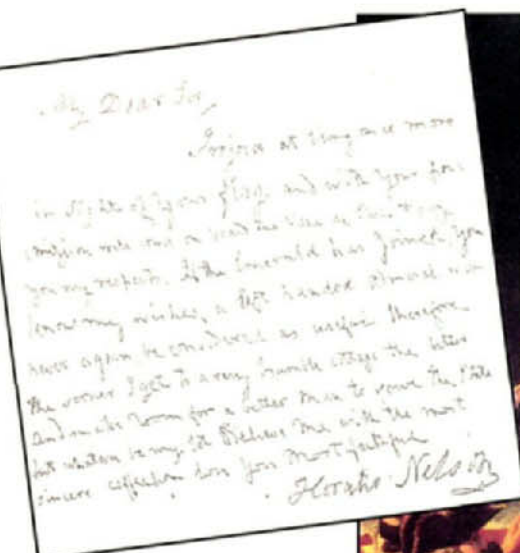 My Dear Sir,
I rejoice at being once more
in sight of your flag, and with your per
mission will come on board the Ville de Paris & pay
you my respects. If the Emerald has Joined, you
know my wishes, a left handed Admiral will
never again be considered as useful therefore
the sooner I get to a very humble cottage the better
and make room for a better man to serve the State
but whatever be my lot Believe me with the most
sincere affection ever your most faithful
Horatio Nelson